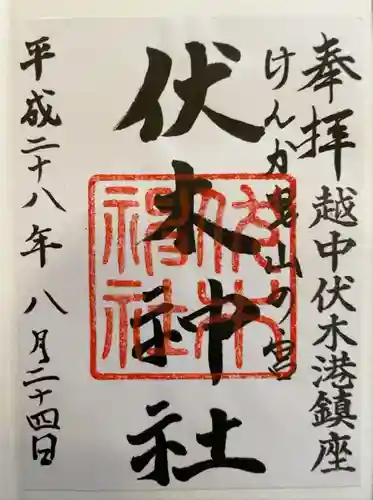 奉拝 越中伏木港鎮座
けんか曳山の宮
伏木神社
伏木神社
平成二十八年八月二十四日